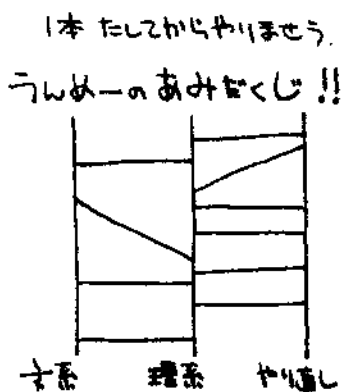 1本 たしてからやりませう.
うんめーの あみだくじ!!
文系 理系 やり直し